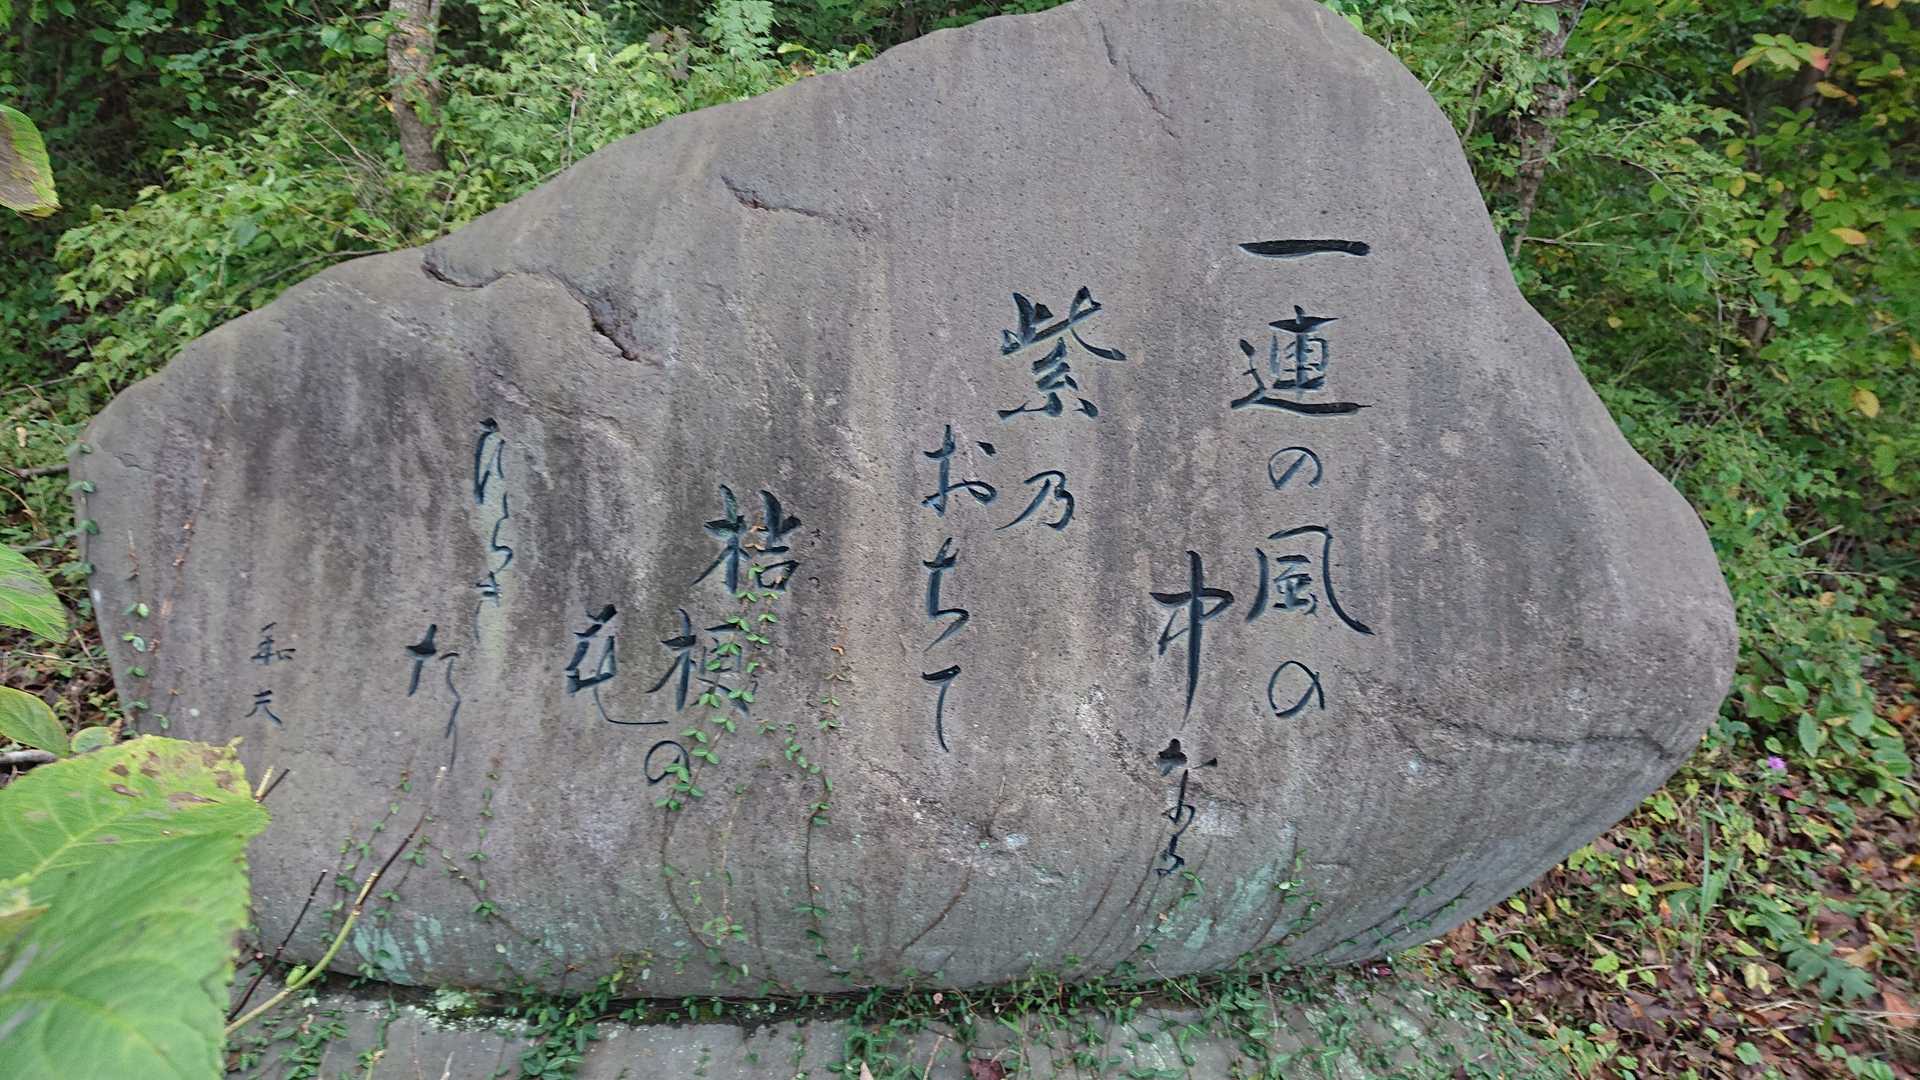 一連の風の
中なる
紫乃
おちて
桔梗の
花
ひらき
たり
和夫